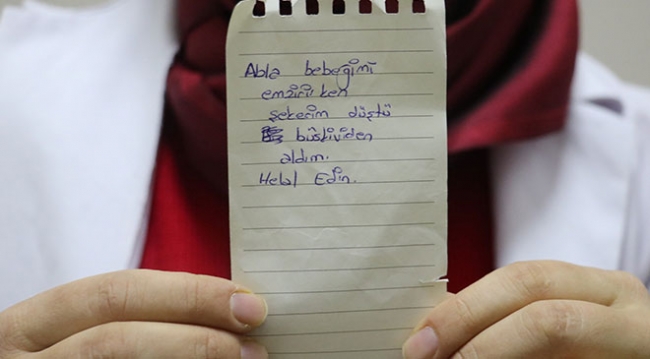 Abla bebeğimi
emzirirken
şekerim düştü
büskividen
aldım.
Helal Edin.